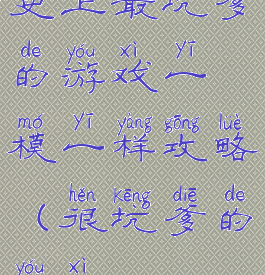 史上最坑爹
de yóu xì yī
的游戏一
mó yī yàng gōng lüè
模一样攻略
hěn kēng diē de
（很坑爹的
yóu xì